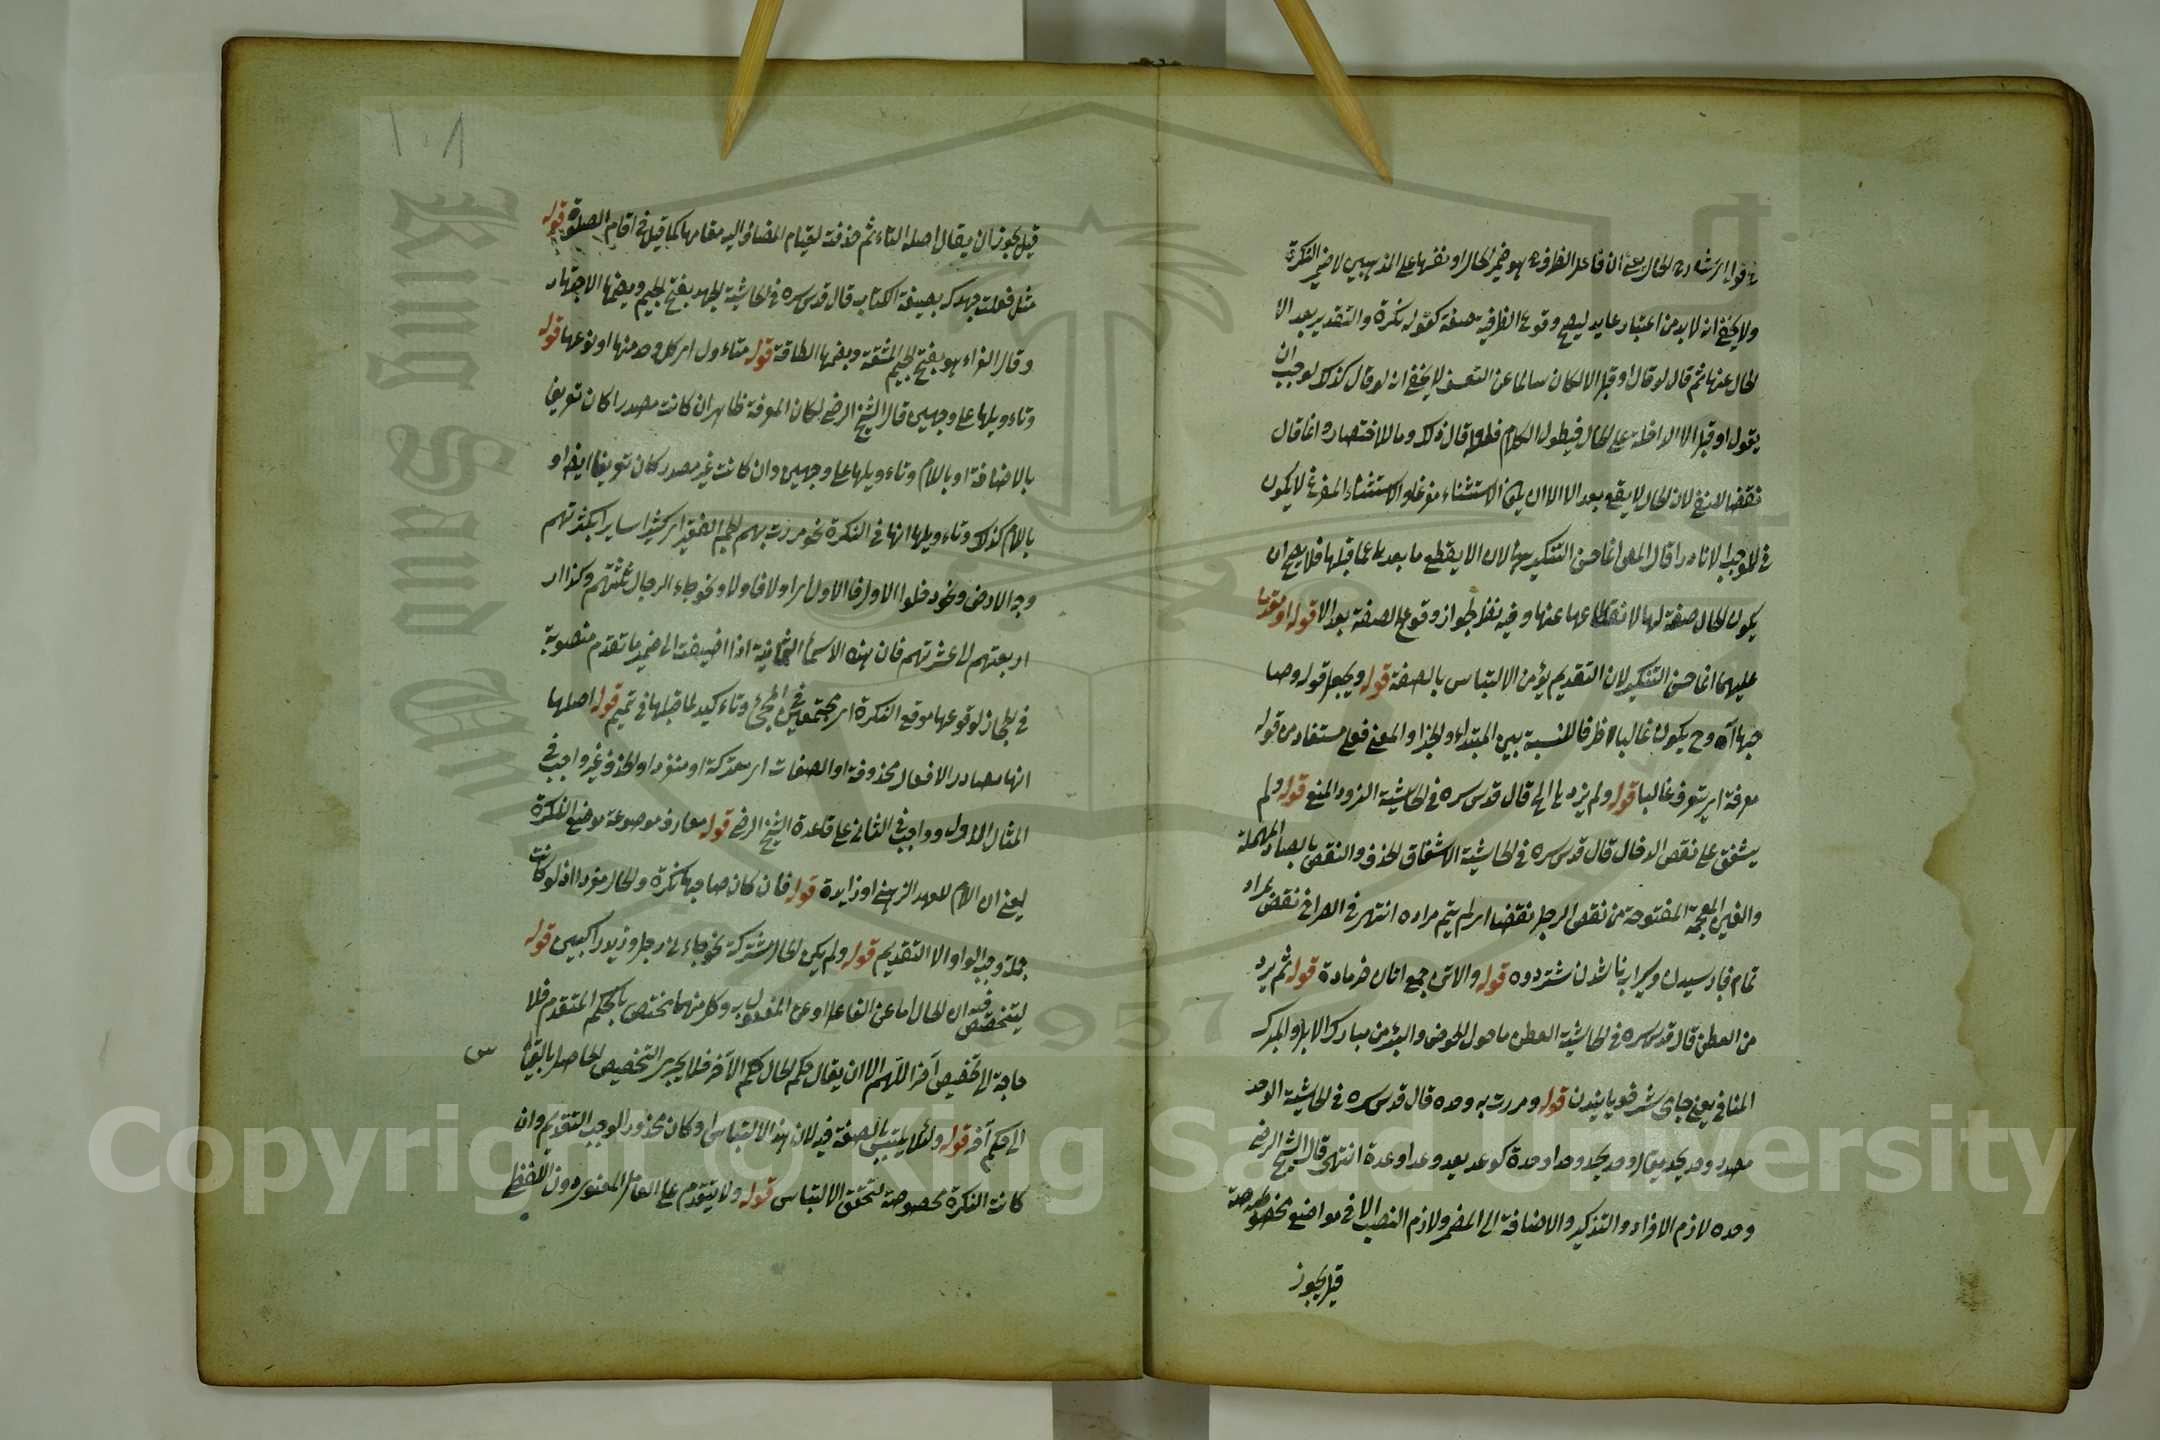 ولا يخفى انه لا بد من اعتبار عايد ليصح وقوع الظرفية صفة كقوله نكرة والتقدير بعد الا
الحال عنها ثم قال لو قال او قبل الا لكان سالما عن التعسف لا يخفى انه لو قال كذلك لوجب ان
يقول او قبل الا الداخلة على الحال فيطول الكلام قال ذلك وما للاختصار انما قال
نقضا للنفي لان الحال لا يقع بعد الا الا ان يكون الاستثناء مفرغا والاستثناء المفرغ لا يكون
في الموجب الا نادرا قال المص انما حسن التنكير لان الا يقطع ما بعدها عما قبلها فلا يصح ان
يكون الحال صفة لها لانقطاعها عنها وفيه نظر لجواز وقوع الصفة بعد الا قوله او مقدما
عليهما انما حسن التنكير لان التقديم يؤمن الالتباس بالصفة قوله ويجعل قوله وصا
حبها آه وح يكون غالبا ظرفا للنسبة بين المبتداء والخبر والمعنى مستفاد من قوله
معرفة اي يتعرف غالبا قوله ولم يزدها الخ قال قدس سره في الحاشية الزود المنع قوله ولم
يشفق على نغص الدخال قال قدس سره في الحاشية الاشفاق الخوف والنغص بالصاد المهملة
والغين المعجمة المفتوحة من نغص الرجل نغصا اي لم يتم مراده انتهى في الصراح نغص مراد
تمام نارسيدن وسيراب ناشدن شتر دوه قوله والاتن جمع اتان خر ماده قوله ثم يرد
من العطن قال قدس سره في الحاشية العطن ما حول الحوض والبئر من مبارك الابل والمبرك
المناخ يعني جاى شتر فو يانيدن قوله ومررت به وحده قال قدس سره في الحاشية الوحد
مصدر وحد يحد يقال وحد يحد وحدا وحدة كوعد يعد وعدا وعدة انتهى قال الشيخ الرضي
وحده لازم الافراد والتذكير والاضافة الى المضمر ولازم النصب الا في مواضع مخصوصة
قيل يجوز
١٠٨
قيل يجوز ان يقال اصله التاء ثم حذفت لقيام المضاف اليه مقامها كما قيل في اقام الصلوة قوله
مثل فعلت جهدك بصيغة الكتاب قال قدس سره في الحاشية الجهد بفتح الجيم وبضمها الاجتهاد
وقال الفراء هو بفتح الجيم المشقة وبضمها الطاقة قوله متاءول اي كل وحد منها او نوعها قوله
وتاءويلها على وجهين قال الشيخ الرضي الحال المعرفة ظاهر ان كانت مصدرا كان تعريفها
بالاضافة او باللام وتاءويلها على وجهين وان كانت غير مصدر كان تعريفها ايضا او
باللام كذلك وتاءويلها انها في النكرة نحو مررت بهم الجم الغفير اي كثيرا ساترا بكثرتهم
وجه الارض ونحو دخلوا الاول فالاول اي اولا فاولا ونحو جاء الرجال ثلثتهم وكذا ار
اربعتهم الى عشرتهم فان هذه الاسماء الثمانية اذا اضيفت الى ضمير ما تقدم منصوبة
في الحجاز لوقوعها موقع النكرة اي مجتمعين في المجئ وتاءكيد لما قبلها في تميم قوله اصلها
انها مصادر الافعال محذوفة او الصفات اي معتركة او منفردا والحذف غير واجب في
المثال الاول وواجب في الثاني على قاعدة الشيخ الرضي قوله معارف موضوعة موضع النكرة
يعني ان اللام للعهد الذهني او زايدة قوله فان كان صاحبها نكرة والحال مفردا اذ لو كانت
جملة وجب الواو الا التقديم قوله ولم يكن الحال مشتركة نحو جاءني رجل وزيد راكبين قوله
ليتخصص فيه ان الحال اما عن الفاعل او عن المفعول به وكل منهما يختص بالحكم المتقدم فلا
حاجة الى تخصيص آخر اللهم الا ان يقال حكم الحال حكم الآخر فلا يجر التخصيص الحاصل بالقياس
الى حكم آخر قوله ولئلا يلتبس بالصفة فيه لان هذا الالتباس لو كان محذورا لوجب التقديم وان
كانت النكرة مخصوصة لتحقق الالتباس قوله ولا يتقدم على العامل المعنوي دون اللفظي
Copyright © King Saud University
King Saud University
1957